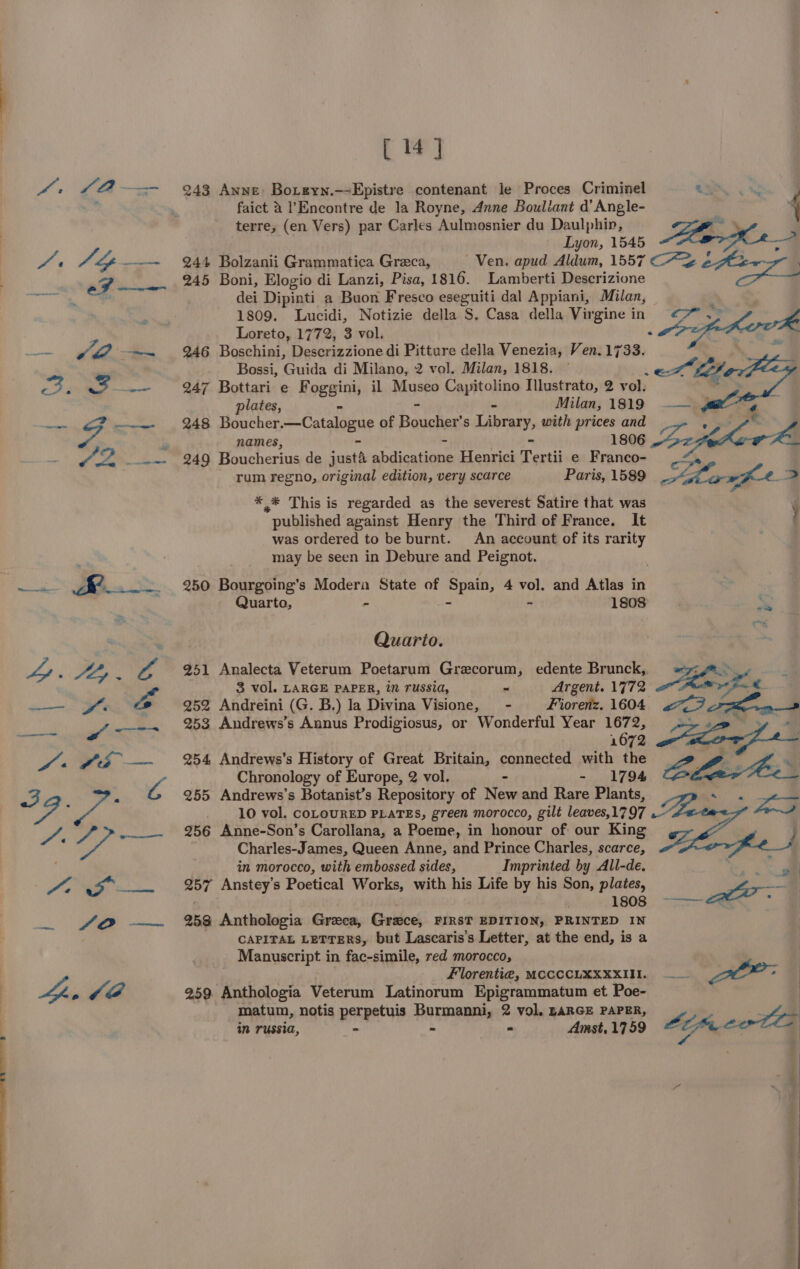 [ 14 ]
243 Anne Boleyn.--Epistre contenant le Proces Criminel
faict à l'Encontre de la Royne, Anne Boullant d'Angle-
terre, (en Vers) par Carles Aulmosnier du Daulphin,
Lyon, 1545
244 Bolzanii Grammatica Græca, Ven. apud Aldum, 1557
245 Boni, Elogio di Lanzi, Pisa, 1816. Lamberti Descrizione
dei Dipinti a Buon Fresco eseguiti dal Appiani, Milan,
1809. Lucidi, Notizie della S. Casa della Virgine in
Loreto, 1772, 3 vol.
246 Boschini, Descrizzione di Pitture della Venezia, Ven. 1733.
Bossi, Guida di Milano, 2 vol. Milan, 1818.
3. 3 — 247 Bottari e Foggini, il Museo Capitolino Illustrato, 2 vol.
plates, - - - Milan, 1819
248 Boucher.—Catalogue of Boucher's Library, with prices and
names, - - - 1806
249 Boucherius de justâ abdicatione Henrici Tertii e Franco-
rum regno, original edition, very scarce Paris, 1589
*** This is regarded as the severest Satire that was
published against Henry the Third of France. It
was ordered to be burnt. An account of its rarity
may be seen in Debure and Peignot.
250 Bourgoing's Modern State of Spain, 4 vol. and Atlas in
Quarto, - - - 1808
Quarto.
251 Analecta Veterum Poetarum Græcorum, edente Brunck,
3 vol. LARGE PAPER, in russia, - Argent. 1772
252 Andreini (G. B.) la Divina Visione, - Fiorenz. 1604
253 Andrews's Annus Prodigiosus, or Wonderful Year 1672,
1672
254 Andrews's History of Great Britain, connected with the
Chronology of Europe, 2 vol. - - 1794
39. 7. 6 255 Andrews's Botanist's Repository of New and Rare Plants,
10 vol. COLOURED PLATES, green morocco, gilt leaves, 1797
256 Anne-Son's Carollana, a Poeme, in honour of our King
Charles-James, Queen Anne, and Prince Charles, scarce,
in morocco, with embossed sides, Imprinted by All-de.
257 Anstey's Poetical Works, with his Life by his Son, plates,
1808
— 10 — 258 Anthologia Græca, Græce, FIRST EDITION, PRINTED IN
CAPITAL LETTERS, but Lascaris's Letter, at the end, is a
Manuscript in fac-simile, red morocco,
Florentiæ, MCCCCLXXXXIII.
259 Anthologia Veterum Latinorum Epigrammatum et Poe-
matum, notis perpetuis Burmanni, 2 vol. LARGE PAPER,
in russia, - - - Amst. 1759